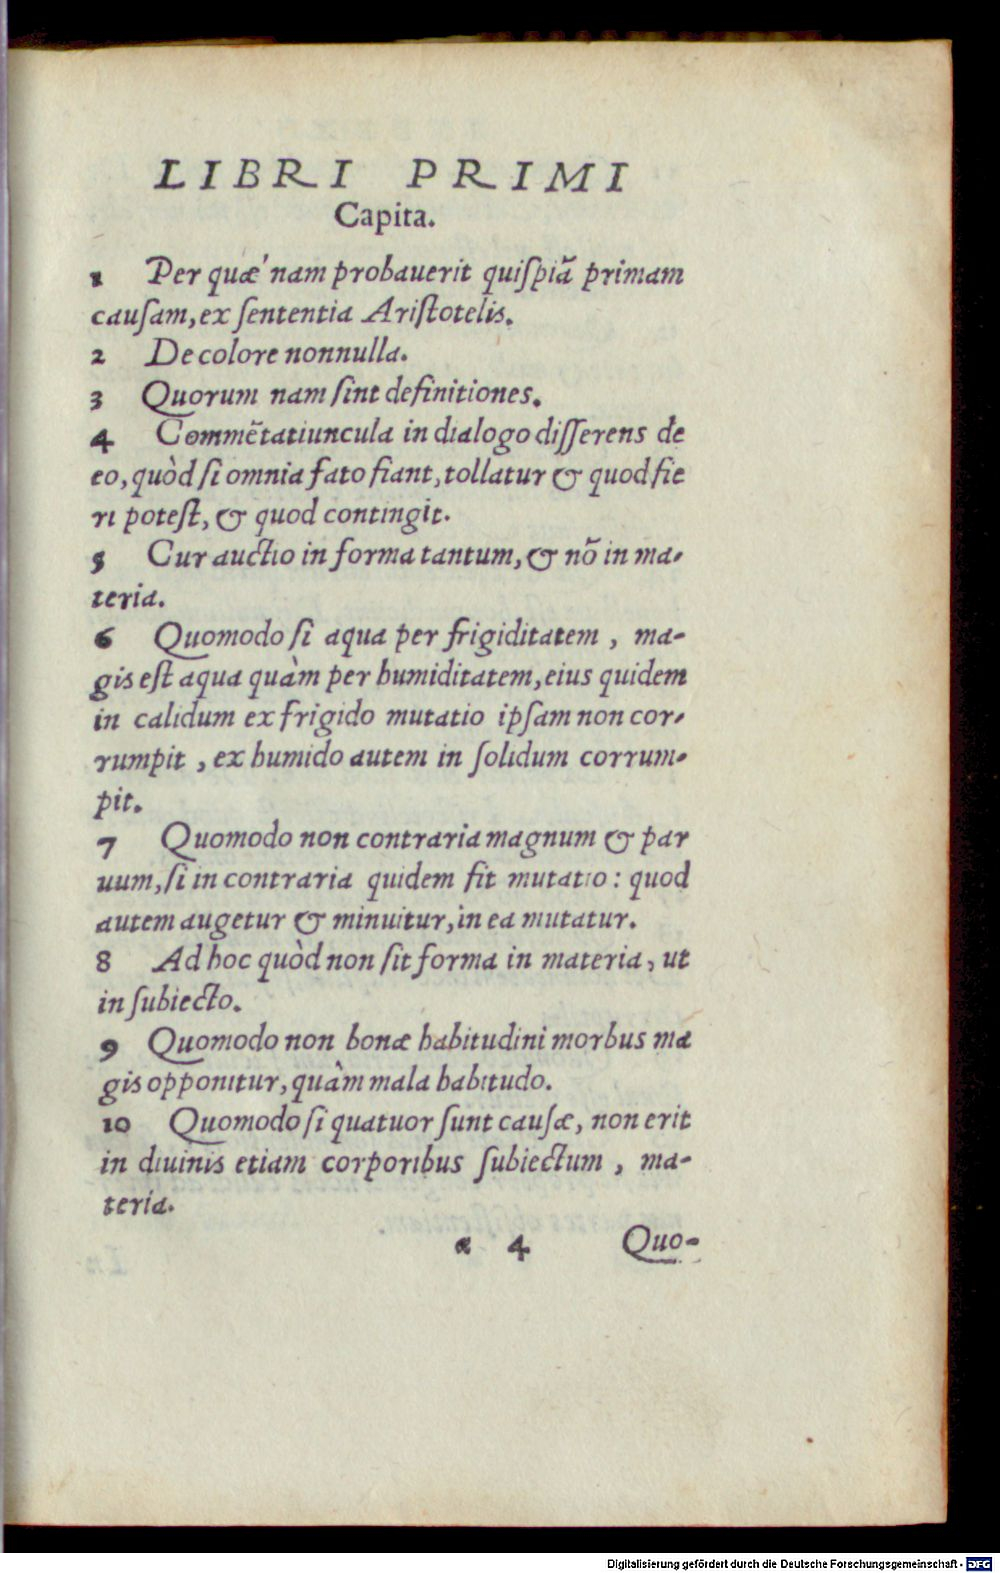 LIBRI PRIMI
Capita.
1 Per quæ' nam probauerit quiſpiã primam
cauſam, ex ſententia Ariſtotelis.
2 De colore nonnulla.
3 Quorum nam ſint definitiones.
4 Commẽtatiuncula in dialogo diſſerens de
eo, quòd ſi omnia fato fiant, tollatur & quod fie
ri poteſt, & quod contingit.
5 Cur auctio in forma tantum, & nõ in ma-
teria.
6 Quomodo ſi aqua per frigiditatem, ma-
gis eſt aqua quàm per humiditatem, eius quidem
in calidum ex frigido mutatio ipſam non cor-
rumpit, ex humido autem in ſolidum corrum-
pit.
7 Quomodo non contraria magnum & par
uum, ſi in contraria quidem fit mutatio: quod
autem augetur & minuitur, in ea mutatur.
8 Ad hoc quòd non ſit forma in materia, ut
in ſubiecto.
9 Quomodo non bonæ habitudini morbus ma
gis opponitur, quàm mala habitudo.
10 Quomodo ſi quatuor ſunt cauſæ, non erit
in diuinis etiam corporibus ſubiectum, ma-
teria.
α 4 Quo-
Digitalisierung gefördert durch die Deutsche Forschungsgemeinschaft - DFG